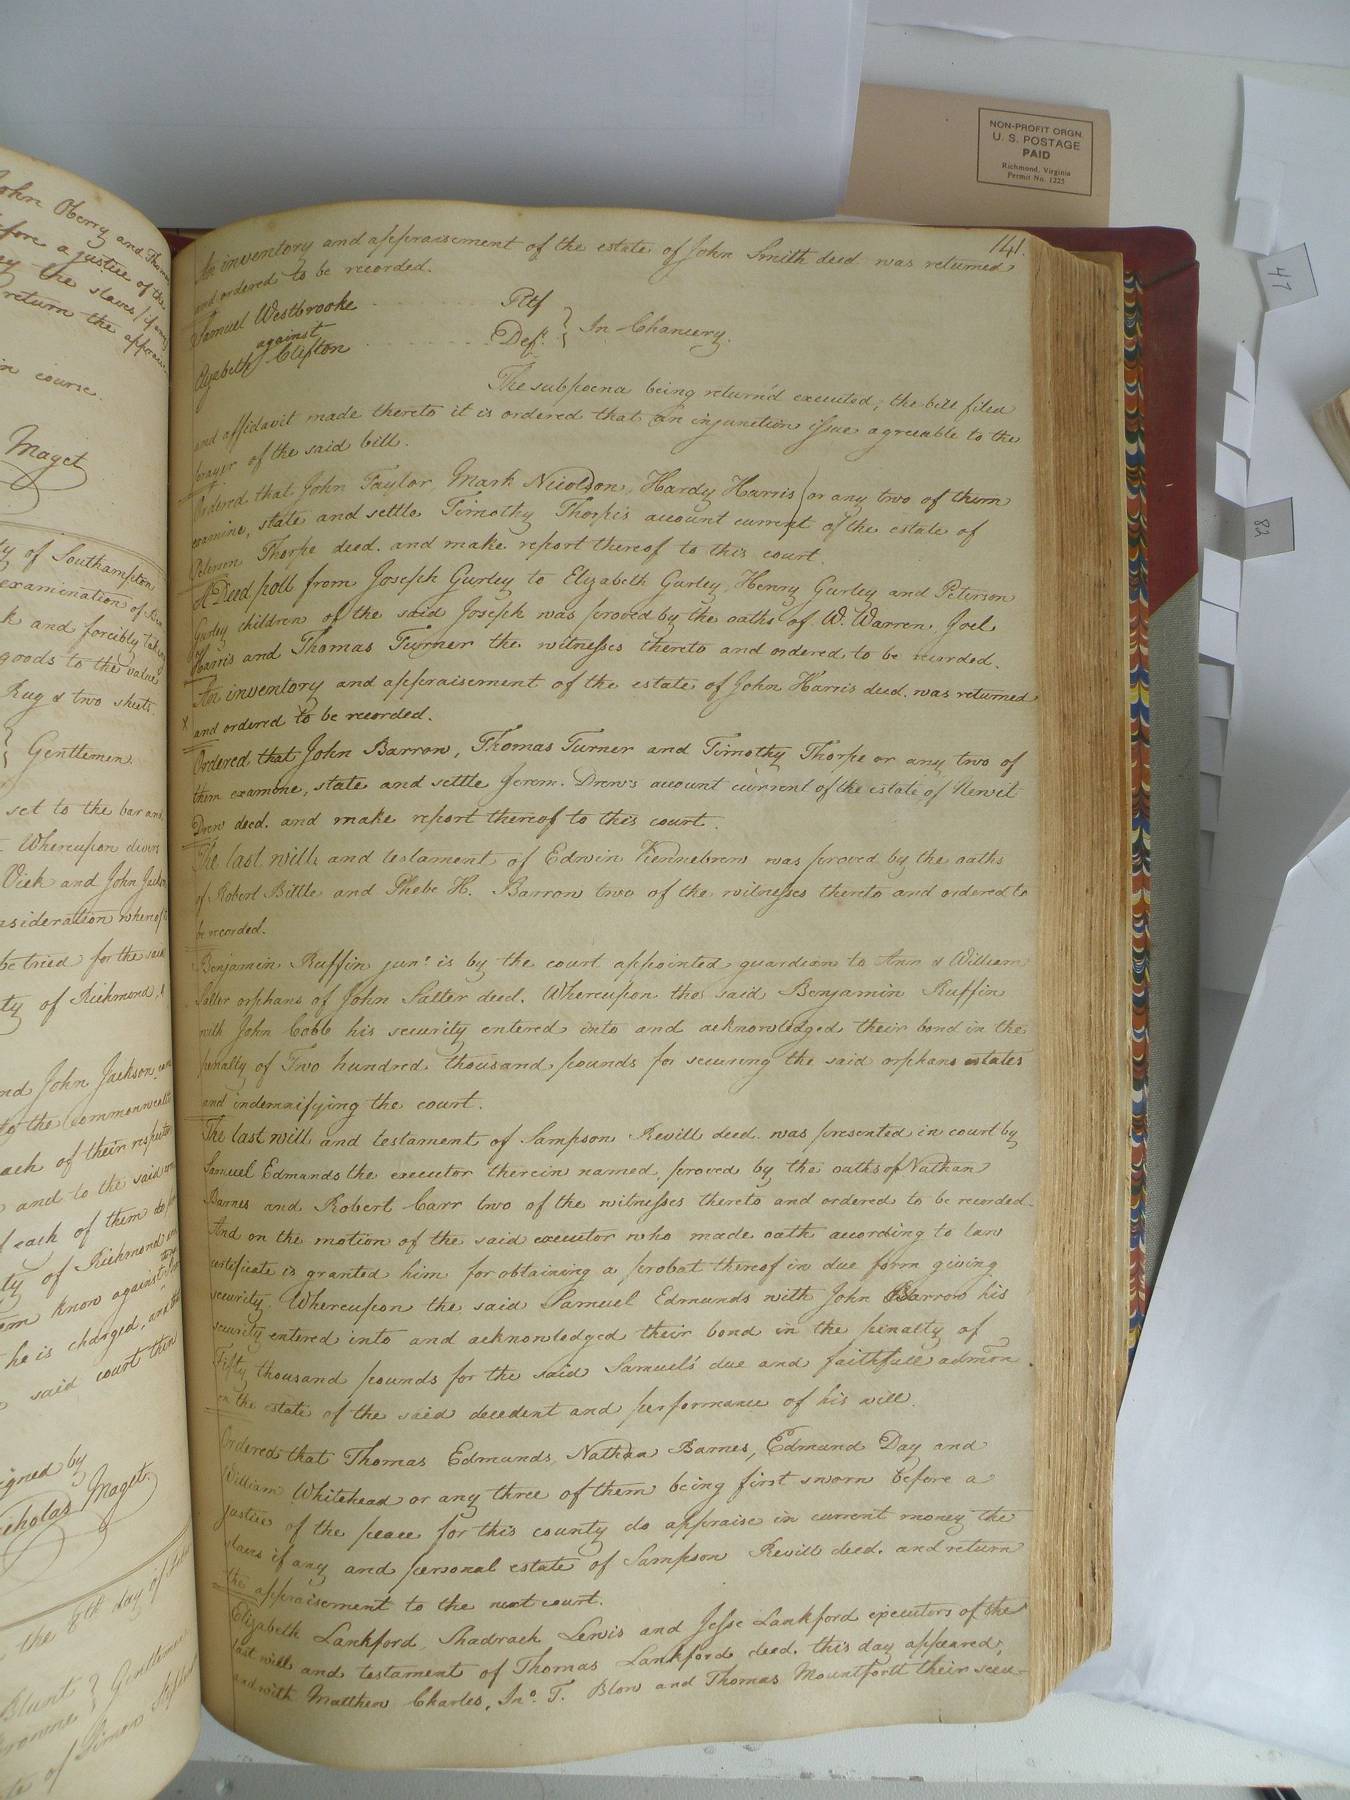 NON-PROFIT ORGN.
U. S. POSTAGE
PAID
Richmond, Virginia
Permit No. 1225
47
82
John Oberry and Thomas
before a justice of the
the slaves (if any
return the appraise
in course.
Maget
ty of Southampton
examination of
k and forcibly taking
goods to the value
Rug & two sheets.
Gentlemen.
set to the bar and
Whereupon divers
Vick and John Jackson
nsideration whereof
be tried for the said
ty of Richmond,
nd John Jackson
to the commonwealth
each of their respective
and to the said
f each of them do
ty of Richmond
know against the
he is charged, and the
said court then
signed by
Nicholas Maget.
the 8th day of
Blunt } Gentlemen
of Simon
141.
An inventory and appraisement of the estate of John Smith deed was returned
and ordered to be recorded.
Samuel Westbrooke Pltf
against } In Chancery.
Elizabeth Clifton Deft.
The subpoena being return'd executed, the bill filed
and affidavit made thereto it is ordered that an injunction issue agreeable to the
prayer of the said bill.
Ordered that John Taylor Mark Nicolson, Hardy Harris (or any two of them
examine, state and settle Timothy Thorpe's account current of the estate of
Peterson Thorpe deed. and make report thereof to this court.
A Deed poll from Joseph Gurley to Elizabeth Gurley, Henry Gurley and Peterson
Gurley children of the said Joseph was proved by the oaths of W. Warren, Joel
Harris and Thomas Turner the witnesses thereto and ordered to be recorded.
An inventory and appraisement of the estate of John Harris deed. was returned
x and ordered to be recorded.
Ordered that John Barrow, Thomas Turner and Timothy Thorpe or any two of
them examine, state and settle Jerem. Drew's account current of the estate of Newit
Drew deed. and make report thereof to this court.
The last will and testament of Edwin Kennebrew was proved by the oaths
of Robert Bittle and Phebe H. Barrow two of the witnesses thereto and ordered to
be recorded.
Benjamin Ruffin junr. is by the court appointed guardian to Ann & William
Salter orphans of John Salter deed. Whereupon the said Benjamin Ruffin
with John Cobb his security entered into and acknowledged their bond in the
penalty of Two hundred thousand pounds for securing the said orphans estates
and indemnifying the court.
The last will and testament of Sampson Revill deed. was presented in court by
Samuel Edmunds the executor therein named, proved by the oaths of Nathan
Barnes and Robert Carr two of the witnesses thereto and ordered to be recorded.
And on the motion of the said executor who made oath according to law
certificate is granted him for obtaining a probat thereof in due form giving
security. Whereupon the said Samuel Edmunds with John Barrow his
security entered into and acknowledged their bond in the penalty of
Fifty thousand pounds for the said Samuel's due and faithfull admōn
on the estate of the said decedent and performance of his will.
Ordered that Thomas Edmunds, Nathan Barnes, Edmund Day and
William Whitehead or any three of them being first sworn before a
justice of the peace for this county do appraise in current money the
slaves if any and personal estate of Sampson Revill deed. and return
the appraisement to the next court.
Elizabeth Lankford, Shadrach Lewis and Jesse Lankford executors of the
last will and testament of Thomas Lankford deed. this day appeared,
and with Matthew Charles, Jno. T. Blow and Thomas Mountfortt their secu-